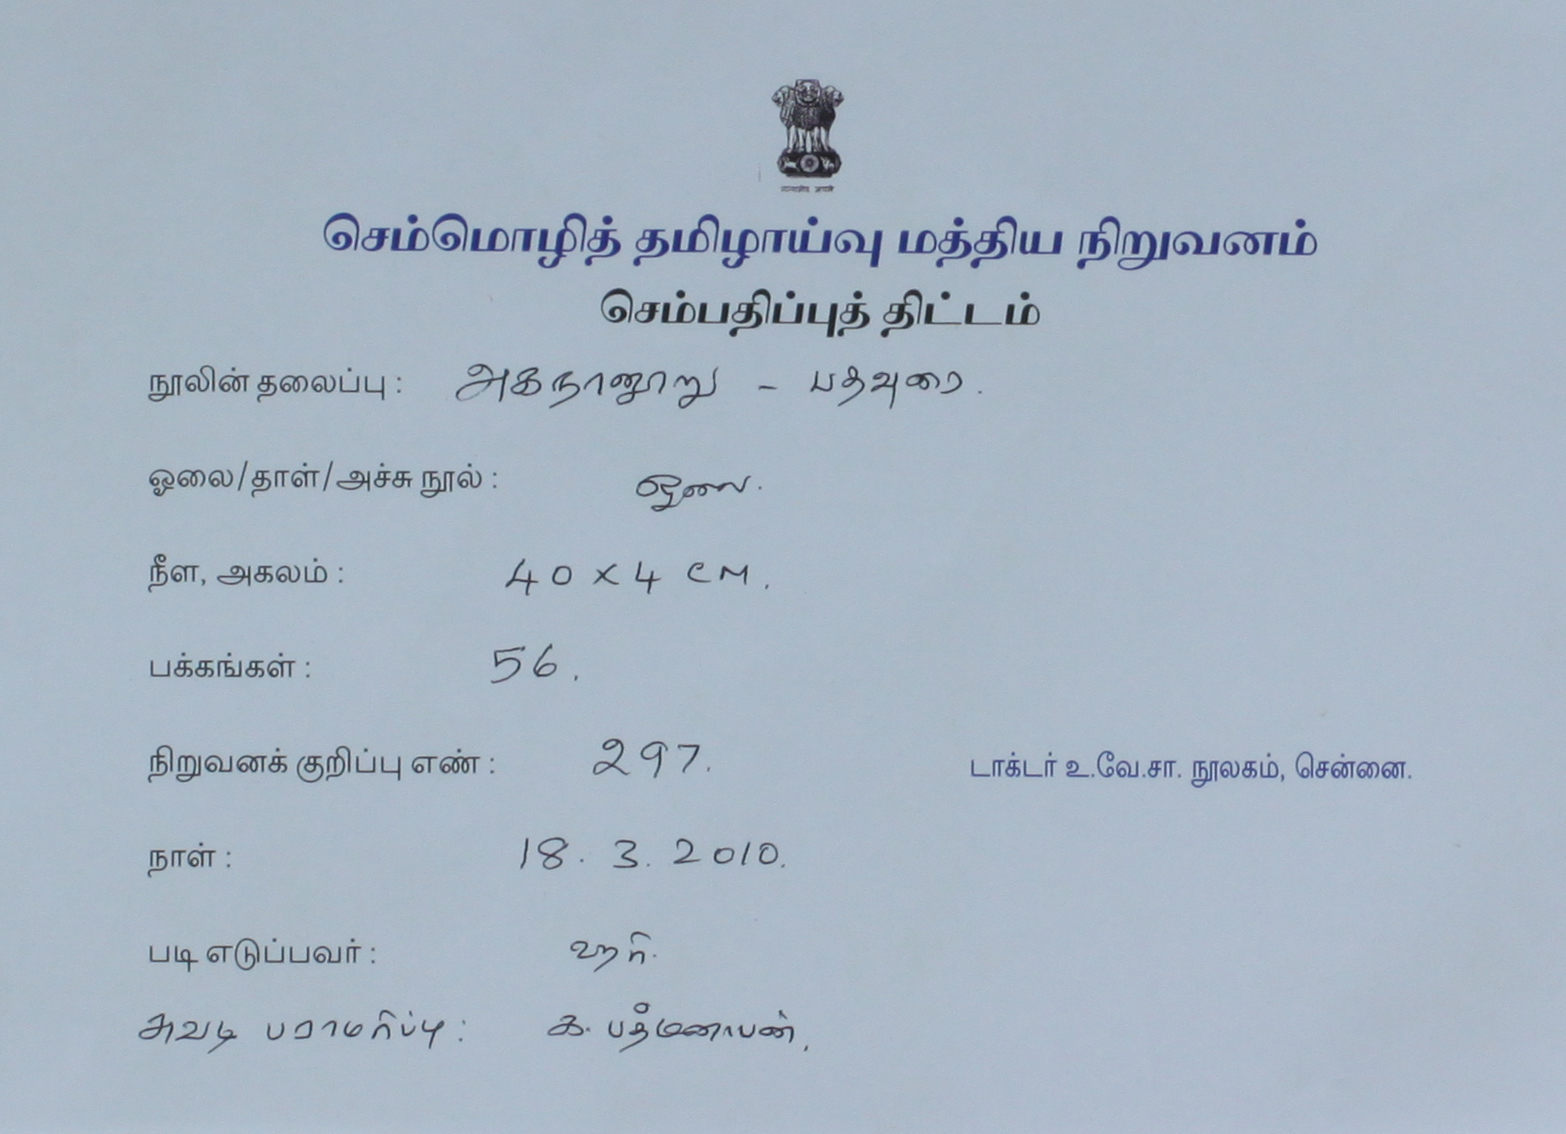 செம்மொழித் தமிழாய்வு மத்திய நிறுவனம்
செம்பதிப்புத் திட்டம்
நூலின் தலைப்பு : அகநானூறு - பதவுரை.
ஓலை/தாள்/அச்சு நூல் : ஓலை.
நீள, அகலம் : 40 x 4 CM.
பக்கங்கள் : 56.
நிறுவனக் குறிப்பு எண் : 297. டாக்டர் உ.வே.சா. நூலகம், சென்னை.
நாள் : 18. 3. 2010.
படி எடுப்பவர் : ஹரி.
சுவடி பராமரிப்பு : க. பத்மனாபன்.